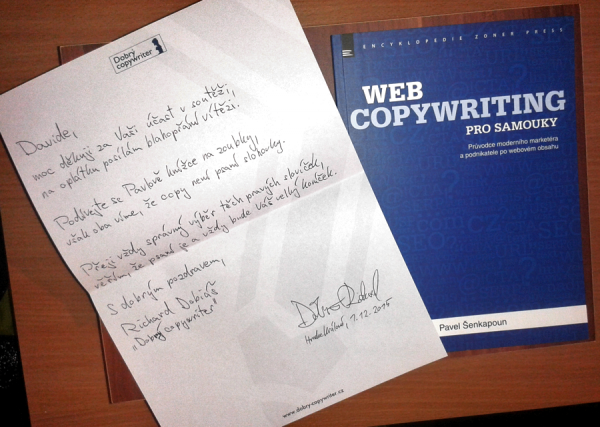 Dobrý
copywriter
Davide,
moc děkuji za Vaši účast v soutěži,
na oplátku posílám blahopřání vítězi.
Podívejte se Pavlově knížce na zoubky,
však oba víme, že copy není psaní slohovky.
Přeji vždy správný výběr těch pravých slovíček,
věřím, že psaní je a vždy bude Váš velký koníček.
S dobrým pozdravem,
Richard Dobiáš
"Dobrý copywriter"
7.12.2015
www.dobry-copywriter.cz
ENCYKLOPEDIE ZONER PRESS
WEB
COPYWRITING
PRO SAMOUKY
Průvodce moderního marketéra
a podnikatele po webovém obsahu
Pavel Šenkapoun